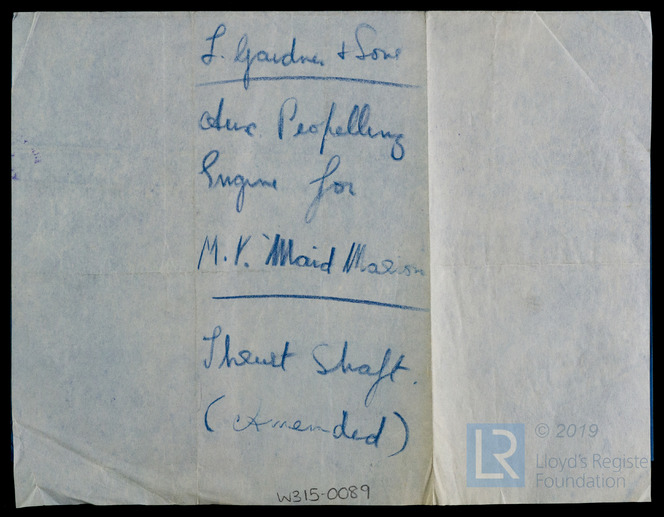 L. Gardner & Sons
Aux. Propelling
Engine for
M.V. "Maid Marion
Thrust Shaft.
(Amended)
W315-0089
LR
© 2019
Lloyd's Registe
Foundation